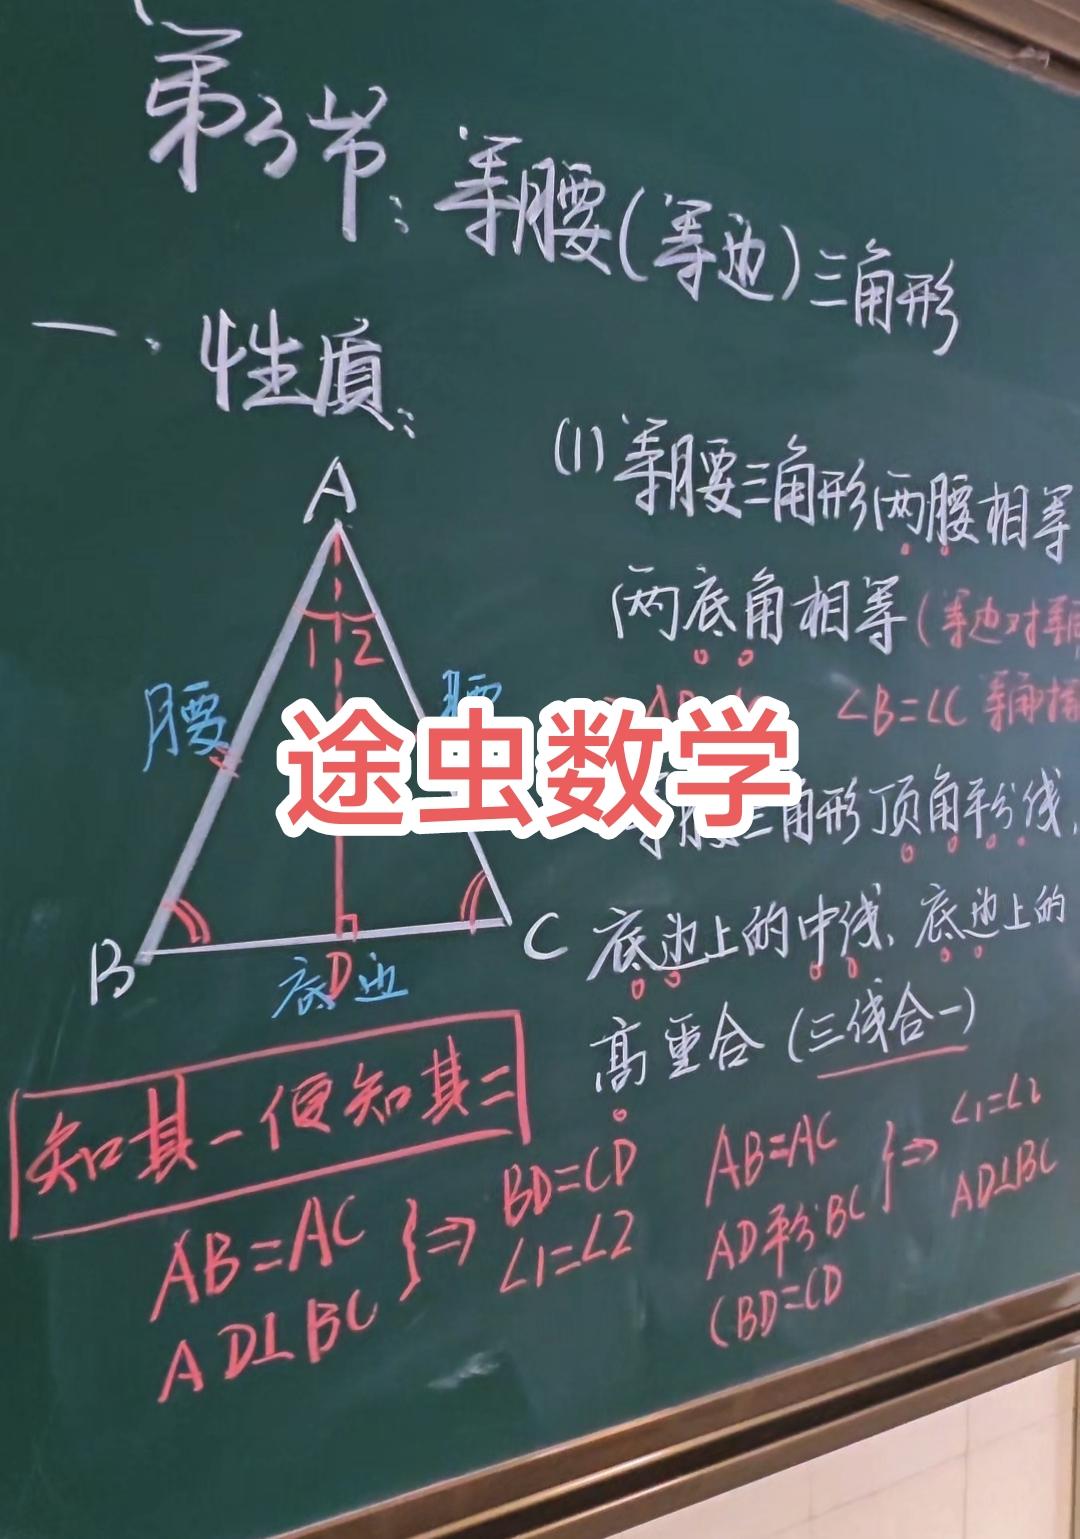 第3节：等腰(等边)三角形
一、性质：
A
1 2
腰
腰
B
C
D
底边
(1) 等腰三角形两腰相等
两底角相等(等边对等
∠B=∠C
途虫数学
等腰三角形顶角平分线、
底边上的中线、底边上的
高重合(三线合一)
知其一便知其二
AB=AC
AD⊥BC
}⇒
BD=CD
∠1=∠2
AB=AC
AD平分BC
(BD=CD
}⇒
∠1=∠2
AD⊥BC